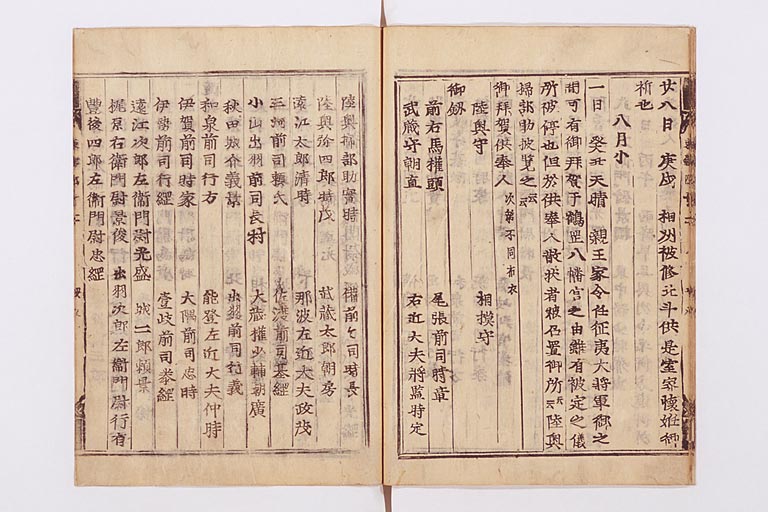 廿八日 庚戌 相州被修北斗供是室家懐姙御
祈也
八月小
一日 癸丑天晴 親王家令任征夷大将軍御之
間可有御拝賀于鶴岡八幡宮之由雖有被定之儀
所被停也但於供奉人散状者被召置御所云云陸奥
掃部助披覧之云云
御拝賀供奉人 次第不同布衣
陸奥守 相模守
御釼
前右馬権頭 尾張前司時章
武蔵守朝直 右近大夫将監時定
陸奥掃部助実時 備前前司時長
陸奥弥四郎時茂 武蔵太郎朝房
遠江太郎清時 那波左近大夫政茂
三河前司頼氏 佐渡前司基綱
小山出羽前司長村 大蔵権少輔朝廣
秋田城介義景 出羽前司行義
和泉前司行方 能登左近大夫仲時
伊賀前司時家 大隅前司忠時
伊勢前司行綱 壹岐前司泰綱
遠江次郎左衛門尉光盛 城二郎頼景
梶原右衛門尉景俊 出羽次郎左衛門尉行有
豊後四郎左衛門尉忠綱